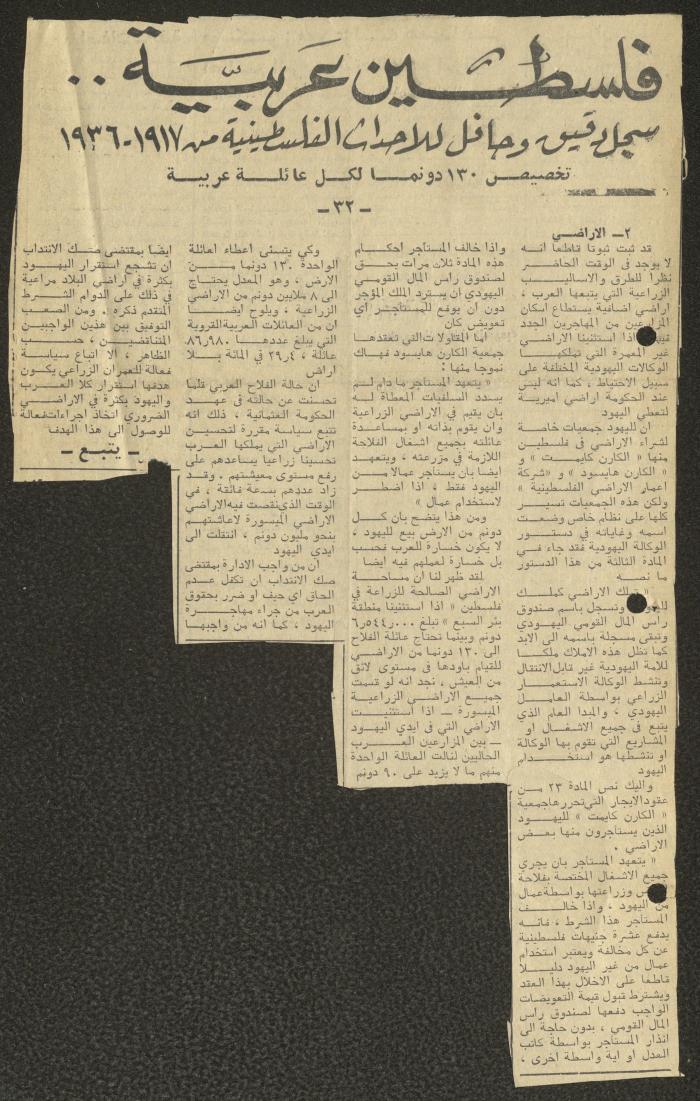 فلسطين عربية ..
سجل دقيق وحافل للاحداث الفلسطينية من ١٩١٧-١٩٣٦
تخصيص ١٣٠ دونما لكل عائلة عربية
- ٣٢ -
٢ - الاراضي
قد ثبت ثبوتا قاطعا انه
لا يوجد في الوقت الحاضر
نظرا للطرق والاساليب
الزراعية التي يتبعها العرب ،
اراضي اضافية يستطاع اسكان
المزارعين من المهاجرين الجدد
اذا استثنينا الاراضي
غير المعمرة التي تملكها
الوكالات اليهودية المختلفة على
سبيل الاحتياط ، كما انه ليس
عند الحكومة اراضي اميرية
لتعطي اليهود
ان لليهود جمعيات خاصة
لشراء الاراضي في فلسطين
منها « الكارن كايمت » و
« الكارن هايسود » و «شركة
اعمار الاراضي الفلسطينية »
ولكن هذه الجمعيات تسير
كلها على نظام خاص وضعت
اسمه وغاياته في دستور
الوكالة اليهودية فقد جاء في
المادة الثالثة من هذا الدستور
ما نصه
« تملك الاراضي كملك
وتسجل باسم صندوق
راس المال القومي اليهودي
وتبقى مسجلة باسمه الى الابد
كما تظل هذه الاملاك ملكا
للامة اليهودية غير قابل الانتقال
وتنشط الوكالة الاستعمار
الزراعي بواسطة العامل
اليهودي ، والمبدا العام الذي
يتبع في جميع الاشغال او
المشاريع التي تقوم بها الوكالة
او تنشطها هو استخدام
اليهود
واليك نص المادة ٢٣ من
عقود الايجار التي تحررها جمعية
« الكارن كايمت » لليهود
الذين يستاجرون منها بعض
الاراضي .
« يتعهد المستاجر بان يجري
جميع الاشغال المختصة بفلاحة
وزراعتها بواسطة عمال
من اليهود ، واذا خالف
المستاجر هذا الشرط ، فانه
يدفع عشرة جنيهات فلسطينية
عن كل مخالفة ويعتبر استخدام
عمال من غير اليهود دليلا
قاطعا على الاخلال بهذا العقد
ويشترط قبول قيمة التعويضات
الواجب دفعها لصندوق راس
المال القومي ، بدون حاجة الى
انذار المستاجر بواسطة كاتب
العدل او اية واسطة اخرى ،
واذا خالف المستاجر احكام
هذه المادة ثلاث مرات يحق
لصندوق راس المال القومي
اليهودي ان يسترد الملك المؤجر
دون ان يدفع للمستاجر اي
تعويض كان
اما المقاولات التي تعقدها
جمعية الكارن هايسود فهاك
نموجا منها :
« يتعهد المستاجر ما دام لم
يسدد السلفيات المعطاة له
بان يقيم في الاراضي الزراعية
وان يقوم بذاته او بمساعدة
عائلته بجميع اشغال الفلاحة
اللازمة في مزرعته ، ويتعهد
ايضا بان يستاجر عمالا من
اليهود فقط ، اذا اضطر
لاستخدام عمال »
ومن هذا يتضح بان كل
دونم من الارض بيع لليهود ،
لا يكون خسارة للعرب فحسب
بل خسارة لعملهم فيه ايضا
لقد ظهر لنا ان مساحة
الاراضي الصالحة للزراعة في
فلسطين « اذا استثنينا منطقة
بئر السبع » تبلغ ٦٫٥٤٤٫٠٠٠
دونم وبينما تحتاج عائلة الفلاح
الى ١٣٠ دونما من الاراضي
للقيام باودها في مستوى لائق
من العيش ، نجد انه لو قسمت
جميع الاراضي الزراعية
الميسورة — اذا استثنيت
الاراضي التي في ايدي اليهود
— بين المزارعين العرب
الحاليين لنالت العائلة الواحدة
منهم ما لا يزيد على ٩٠ دونم
وكي يتسنى اعطاء اعائلة
الواحدة ١٣٠ دونما من
الارض ، وهو المعدل يحتاج
الى ٨ ملايين دونم من الاراضي
الزراعية ، ويلوح ايضا
ان من العائلات العربية القروية
التي يبلغ عددها ٨٦٫٩٨٠
عائلة ، ٢٩٫٤ في المائة بلا
اراض
ان حالة الفلاح العربي قلما
تحسنت عن حالته في عهد
الحكومة العثمانية ، ذلك انه
تتبع سياسة مقررة لتحسين
الاراضي التي يملكها العرب
تحسينا زراعيا يساعدهم على
رفع مستوى معيشتهم . وقد
زاد عددهم بسعة فائقة ، في
الوقت الذي نقصت فيه الاراضي
الاراضي الميسورة لاعاشتهم
بنحو مليون دونم ، انتقلت الى
ايدي اليهود
ان من واجب الادارة بمقتضى
صك الانتداب ان تكفل عدم
الحاق اي حيف او ضرر بحقوق
العرب من جراء مهاجرة
اليهود ، كما انه من واجبها
ايضا بمقتضى صك الانتداب
ان تشجع استقرار اليهود
بكثرة في اراضي البلاد مراعية
في ذلك على الدوام الشرط
المتقدم ذكره . ومن الصعب
التوفيق بين هذين الواجبين
المتناقضين ، حسب
الظاهر ، الا اتباع سياسة
فعالة للعمران الزراعي يكون
هدفها استقرار كلا العرب
واليهود بكثرة في الاراضي
الضروري اتخاذ اجراءات فعالة
للوصول الى هذا الهدف
- يتبع -